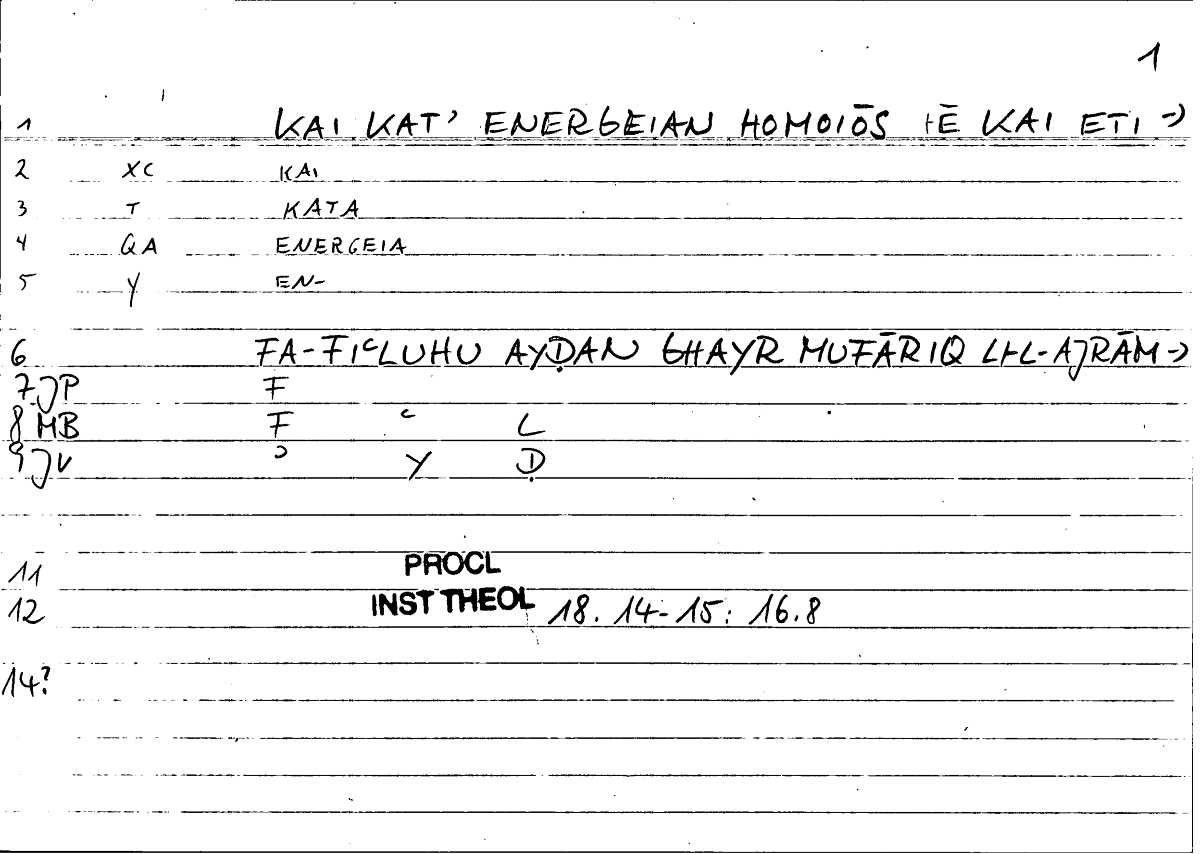 1
1 KAI KAT' ENERGEIAN HOMOIŌS HĒ KAI ETI →
2 XC KAI
3 T KATA
4 QA ENERGEIA
5 Y EN-
6 FA-FIᶜLUHU AYḌAN GHAYR MUFĀRIQ LI-L-AJRĀM →
7 JP F
8 MB F ᶜ L
9 JV ʾ Y Ḍ
11 PROCL
12 INST THEOL 18. 14-15: 16.8
14?